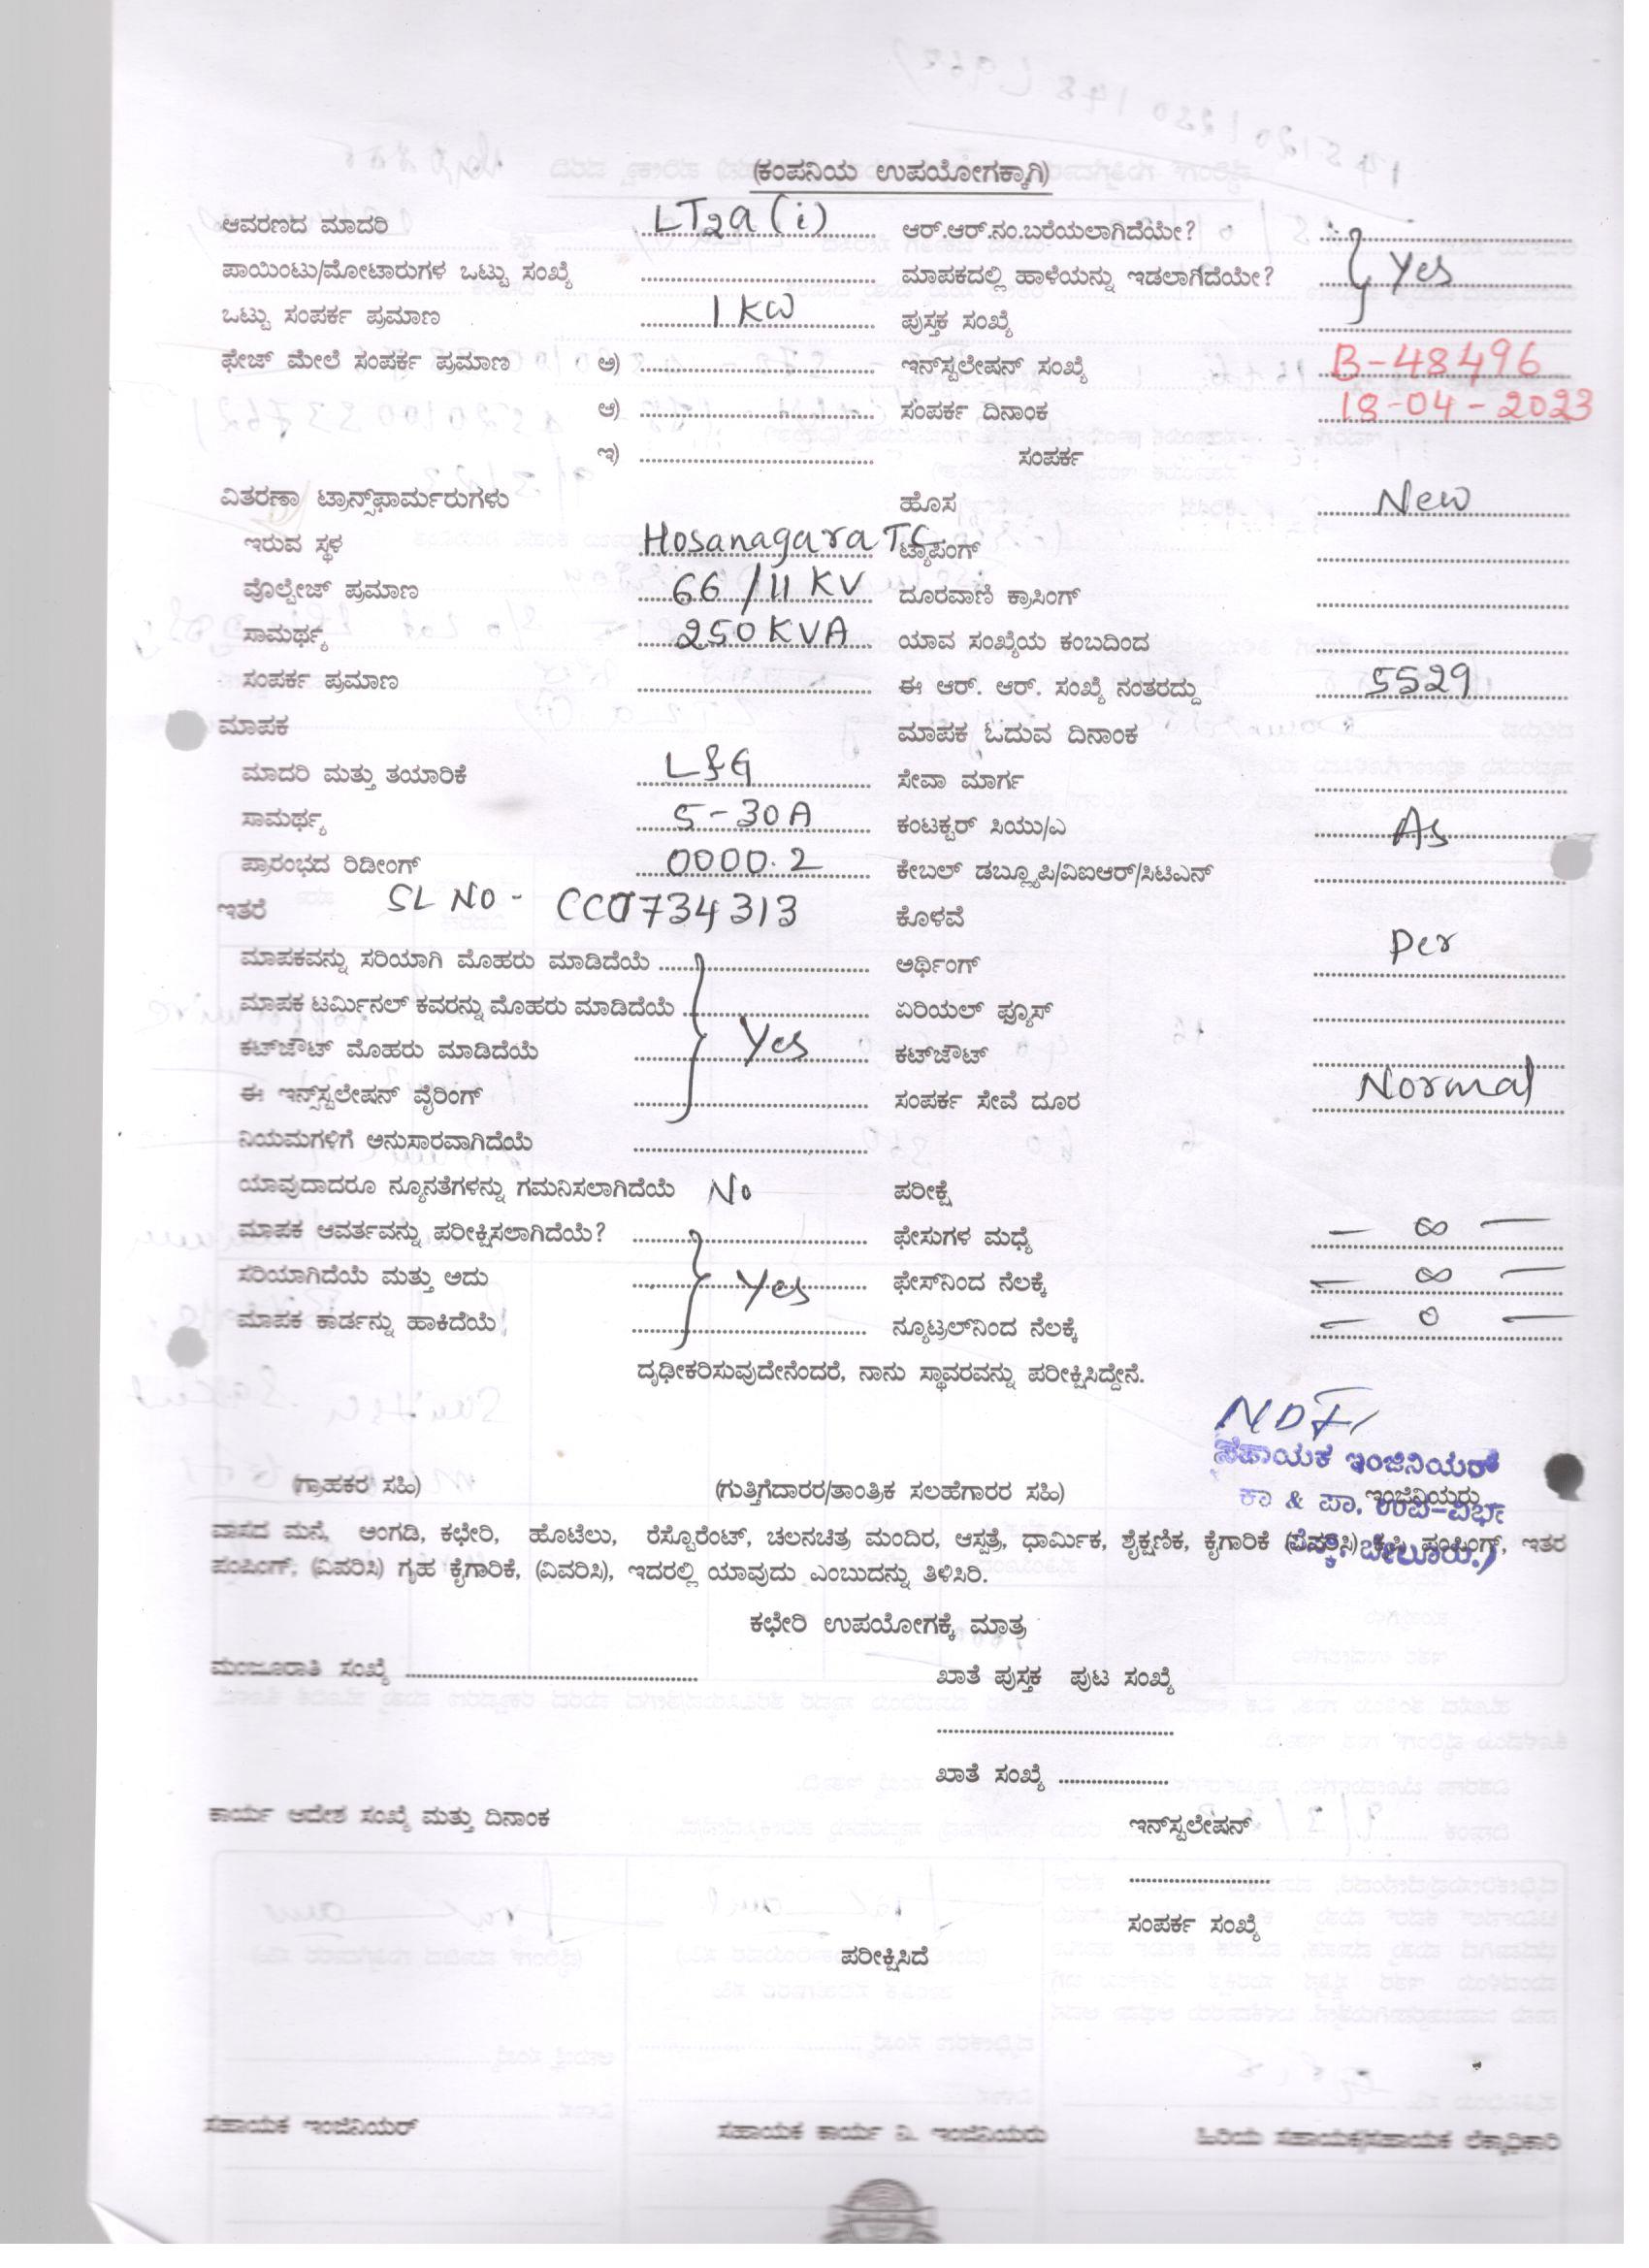 (ಕಂಪನಿಯ ಉಪಯೋಗಕ್ಕಾಗಿ)
ಆವರಣದ ಮಾದರಿ LT2a (i) ಆರ್.ಆರ್.ನಂ.ಬರೆಯಲಾಗಿದೆಯೇ?
ಪಾಯಿಂಟು/ಮೋಟಾರುಗಳ ಒಟ್ಟು ಸಂಖ್ಯೆ ಮಾಪಕದಲ್ಲಿ ಹಾಳೆಯನ್ನು ಇಡಲಾಗಿದೆಯೇ? Yes
ಒಟ್ಟು ಸಂಪರ್ಕ ಪ್ರಮಾಣ 1 KW ಪುಸ್ತಕ ಸಂಖ್ಯೆ
ಫೇಜ್ ಮೇಲೆ ಸಂಪರ್ಕ ಪ್ರಮಾಣ ಅ) ಇನ್‌ಸ್ಟಲೇಷನ್ ಸಂಖ್ಯೆ B-48496
ಆ) ಸಂಪರ್ಕ ದಿನಾಂಕ 18-04-2023
ಇ) ಸಂಪರ್ಕ
ವಿತರಣಾ ಟ್ರಾನ್ಸ್‌ಫಾರ್ಮರುಗಳು ಹೊಸ New
ಇರುವ ಸ್ಥಳ Hosanagara TC ಟ್ಯಾಪಿಂಗ್
ವೊಲ್ಟೇಜ್ ಪ್ರಮಾಣ 66/11 KV ದೂರವಾಣಿ ಕ್ರಾಸಿಂಗ್
ಸಾಮರ್ಥ್ಯ 250 KVA ಯಾವ ಸಂಖ್ಯೆಯ ಕಂಬದಿಂದ
ಸಂಪರ್ಕ ಪ್ರಮಾಣ ಈ ಆರ್. ಆರ್. ಸಂಖ್ಯೆ ನಂತರದ್ದು 5529
ಮಾಪಕ ಮಾಪಕ ಓದುವ ದಿನಾಂಕ
ಮಾದರಿ ಮತ್ತು ತಯಾರಿಕೆ L&G ಸೇವಾ ಮಾರ್ಗ
ಸಾಮರ್ಥ್ಯ 5-30A ಕಂಟಕ್ಟರ್ ಸಿಯು/ಎ As
ಪ್ರಾರಂಭದ ರಿಡೀಂಗ್ 0000.2 ಕೇಬಲ್ ಡಬ್ಲ್ಯೂಪಿ/ವಿಐಆರ್/ಸಿಟಿಎನ್
ಇತರೆ SL NO - CC0734313 ಕೊಳವೆ
ಮಾಪಕವನ್ನು ಸರಿಯಾಗಿ ಮೊಹರು ಮಾಡಿದೆಯೆ ಅರ್ಥಿಂಗ್ Per
ಮಾಪಕ ಟರ್ಮಿನಲ್ ಕವರನ್ನು ಮೊಹರು ಮಾಡಿದೆಯೆ ಏರಿಯಲ್ ಫ್ಯೂಸ್
ಕಟ್‌ಜೌಟ್ ಮೊಹರು ಮಾಡಿದೆಯೆ Yes ಕಟ್‌ಜೌಟ್
ಈ ಇನ್ಸ್‌ಸ್ಟಲೇಷನ್ ವೈರಿಂಗ್ ಸಂಪರ್ಕ ಸೇವೆ ದೂರ Normal
ನಿಯಮಗಳಿಗೆ ಅನುಸಾರವಾಗಿದೆಯೆ
ಯಾವುದಾದರೂ ನ್ಯೂನತೆಗಳನ್ನು ಗಮನಿಸಲಾಗಿದೆಯೆ No ಪರೀಕ್ಷೆ
ಮಾಪಕ ಆವರ್ತವನ್ನು ಪರೀಕ್ಷಿಸಲಾಗಿದೆಯೆ? ಫೇಸುಗಳ ಮಧ್ಯೆ — ∞ —
ಸರಿಯಾಗಿದೆಯೆ ಮತ್ತು ಅದು Yes ಫೇಸ್‌ನಿಂದ ನೆಲಕ್ಕೆ — ∞ —
ಮಾಪಕ ಕಾರ್ಡನ್ನು ಹಾಕಿದೆಯೆ ನ್ಯೂಟ್ರಲ್‌ನಿಂದ ನೆಲಕ್ಕೆ — 0 —
ದೃಢೀಕರಿಸುವುದೇನೆಂದರೆ, ನಾನು ಸ್ಥಾವರವನ್ನು ಪರೀಕ್ಷಿಸಿದ್ದೇನೆ.
ಸಹಾಯಕ ಇಂಜಿನಿಯರ್
(ಗ್ರಾಹಕರ ಸಹಿ) (ಗುತ್ತಿಗೆದಾರರ/ತಾಂತ್ರಿಕ ಸಲಹೆಗಾರರ ಸಹಿ) ಇಂಜಿನಿಯರು
ಕಾ & ಪಾ. ಉಪ-ವಿರ್ಭಾ
ವಾಸದ ಮನೆ, ಅಂಗಡಿ, ಕಛೇರಿ, ಹೊಟೆಲು, ರೆಸ್ಟೊರೆಂಟ್, ಚಲನಚಿತ್ರ ಮಂದಿರ, ಆಸ್ಪತ್ರೆ, ಧಾರ್ಮಿಕ, ಶೈಕ್ಷಣಿಕ, ಕೈಗಾರಿಕೆ (ವಿವರಿಸಿ) ಕೃಷಿ ಪಂಪಿಂಗ್, ಇತರ
ಪಂಪಿಂಗ್, (ವಿವರಿಸಿ) ಗೃಹ ಕೈಗಾರಿಕೆ, (ವಿವರಿಸಿ), ಇದರಲ್ಲಿ ಯಾವುದು ಎಂಬುದನ್ನು ತಿಳಿಸಿರಿ.
ಕಛೇರಿ ಉಪಯೋಗಕ್ಕೆ ಮಾತ್ರ
ಮಂಜೂರಾತಿ ಸಂಖ್ಯೆ ಖಾತೆ ಪುಸ್ತಕ ಪುಟ ಸಂಖ್ಯೆ
ಖಾತೆ ಸಂಖ್ಯೆ
ಕಾರ್ಯ ಆದೇಶ ಸಂಖ್ಯೆ ಮತ್ತು ದಿನಾಂಕ ಇನ್‌ಸ್ಟಲೇಷನ್
ಸಂಪರ್ಕ ಸಂಖ್ಯೆ
ಪರೀಕ್ಷಿಸಿದೆ
ಸಹಾಯಕ ಇಂಜಿನಿಯರ್ ಸಹಾಯಕ ಕಾರ್ಯ ನಿ. ಇಂಜಿನಿಯರು ಹಿರಿಯ ಸಹಾಯಕ/ಸಹಾಯಕ ಲೆಕ್ಕಾಧಿಕಾರಿ